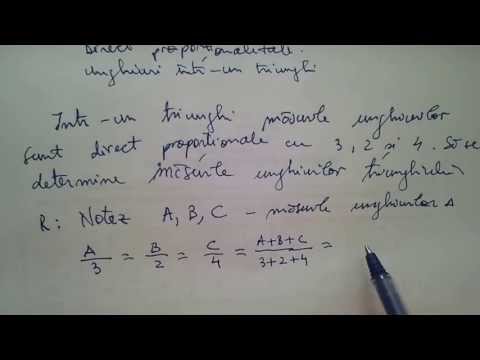 direct proporționalitate.
unghiuri într-un triunghi
Într-un triunghi măsurile unghiurilor
sunt direct proporționale cu 3, 2 și 4. Să se
determine măsurile unghiurilor triunghiului
R: Notez A, B, C - măsurile unghiurilor Δ
A/3 = B/2 = C/4 = A+B+C/3+2+4 =